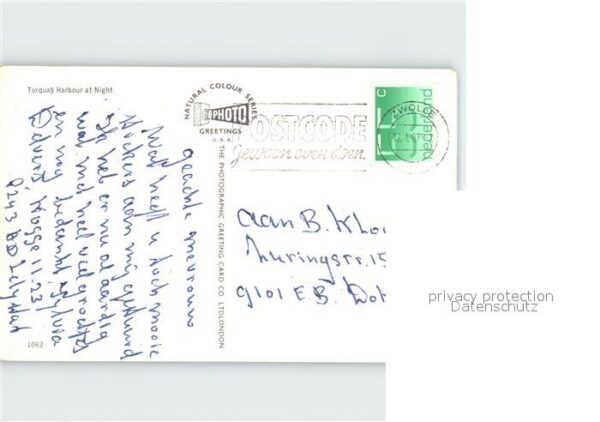 Torquay Harbour at Night
NATURAL COLOUR SERIES
PHOTO
GREETINGS
THE PHOTOGRAPHIC GREETING CARD CO. LTD LONDON
1062
POSTCODE
gewoon even doen.
ZWOLLE
nederland
c
geachte mevrouw
Wat heeft u toch mooie
stickers aan mij gestuurd
Ik heb er nu al aardig
wat met heel veel groetjes
en nog bedankt Sylvia
11.23
8243
Lelystad
aan B. Kloo
9101 EB. Dok
privacy protection
Datenschutz